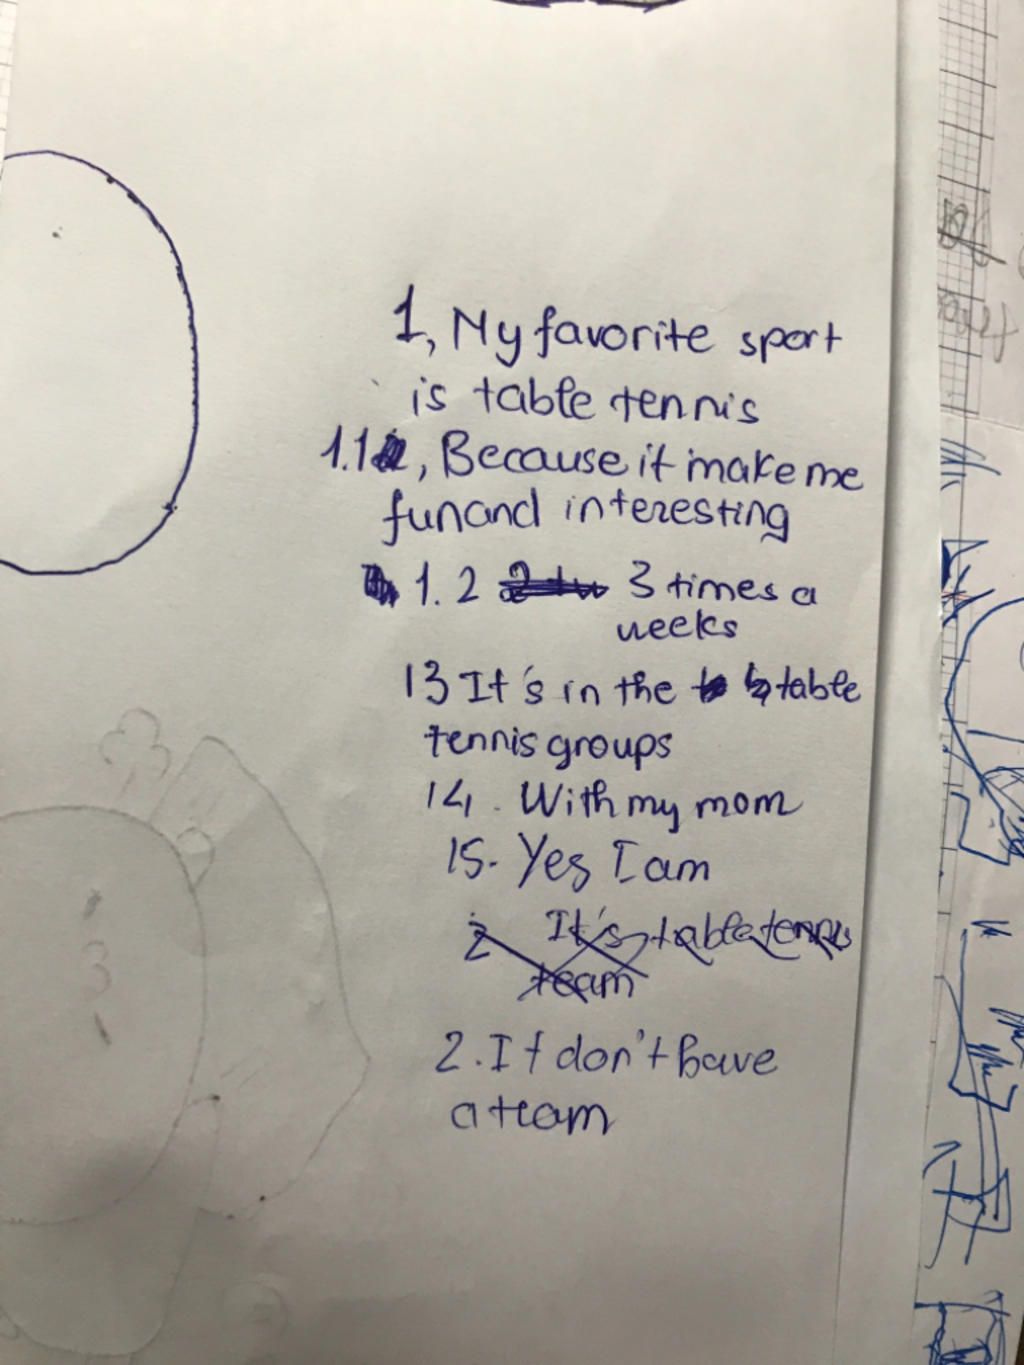 1, My favorite sport
is table tennis
1.1, Because it make me
fun and interesting
1.2 3 times a
weeks
13 It's in the table
tennis groups
14. With my mom
15. Yes I am
2 It's table tennis
team
2. It don't have
a team